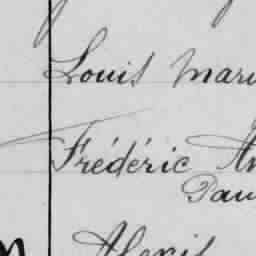 Louis Mari
Frédéric An
Pau
Alexis